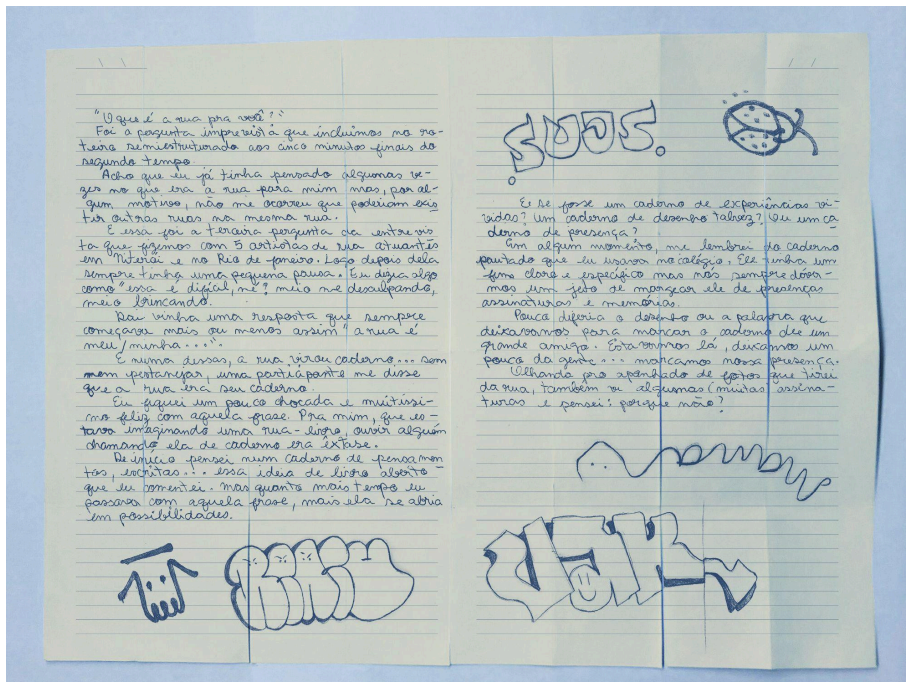 "O que é a rua pra você?"
Foi a pergunta imprevista que incluímos no ro-
teiro semiestruturado aos cinco minutos finais do
segundo tempo.
Acho que eu já tinha pensado algumas ve-
zes no que era a rua para mim mas, por al-
gum motivo, não me ocorreu que poderiam exis
tir outras ruas na mesma rua.
E essa foi a terceira pergunta da entrevis
ta que fizemos com 5 artistas de rua atuantes
em Niterói e no Rio de Janeiro. Logo depois dela
sempre tinha uma pequena pausa. Eu dizia algo
como "essa é difícil, né?" meio me desculpando,
meio brincando.
Daí vinha uma resposta que sempre
começava mais ou menos assim "a rua é
meu/minha...".
E numa dessas, a rua virou caderno... sem
nem pestanejar, uma participante me disse
que a rua era seu caderno.
Eu fiquei um pouco chocada e muitíssi-
mo feliz com aquela frase. Pra mim, que es-
tava imaginando uma rua-livro, ouvir alguém
chamando ela de caderno era êxtase.
De início pensei num caderno de pensamen
tos, escritas... essa ideia de livro aberto
que eu comentei. Mas quanto mais tempo eu
passava com aquela frase, mais ela se abria
em possibilidades.
SUOS.
E se fosse um caderno de experiências vi-
vidas? Um caderno de desenho talvez? Ou um ca
derno de presença?
Em algum momento, me lembrei do caderno
pautado que eu usava no colégio. Ele tinha um
fim claro e específico mas nós sempre dáva-
mos um jeito de marcar ele de presenças
assinaturas e memórias.
Pouco diferia o desenho ou a palavra que
deixávamos para marcar o caderno de um
grande amigo. Estávamos lá, deixamos um
pouco da gente... marcamos nossa presença.
Olhando pro apanhado de fotos que tirei
da rua, também vi algumas (muitas) assina-
turas e pensei: porque não?